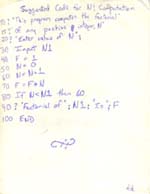 Suggested Code for N! Computation
10 ? "This program computes the factorial"
15 ? of any positive integer, N"
20 ? "Enter value of N";
30 Input N1
40 F = 1
50 N = 0
60 N = N+1
70 F = F*N
80 If N < N1 then 60
90 ? "Factorial of "; N1; "Is"; F
100 END